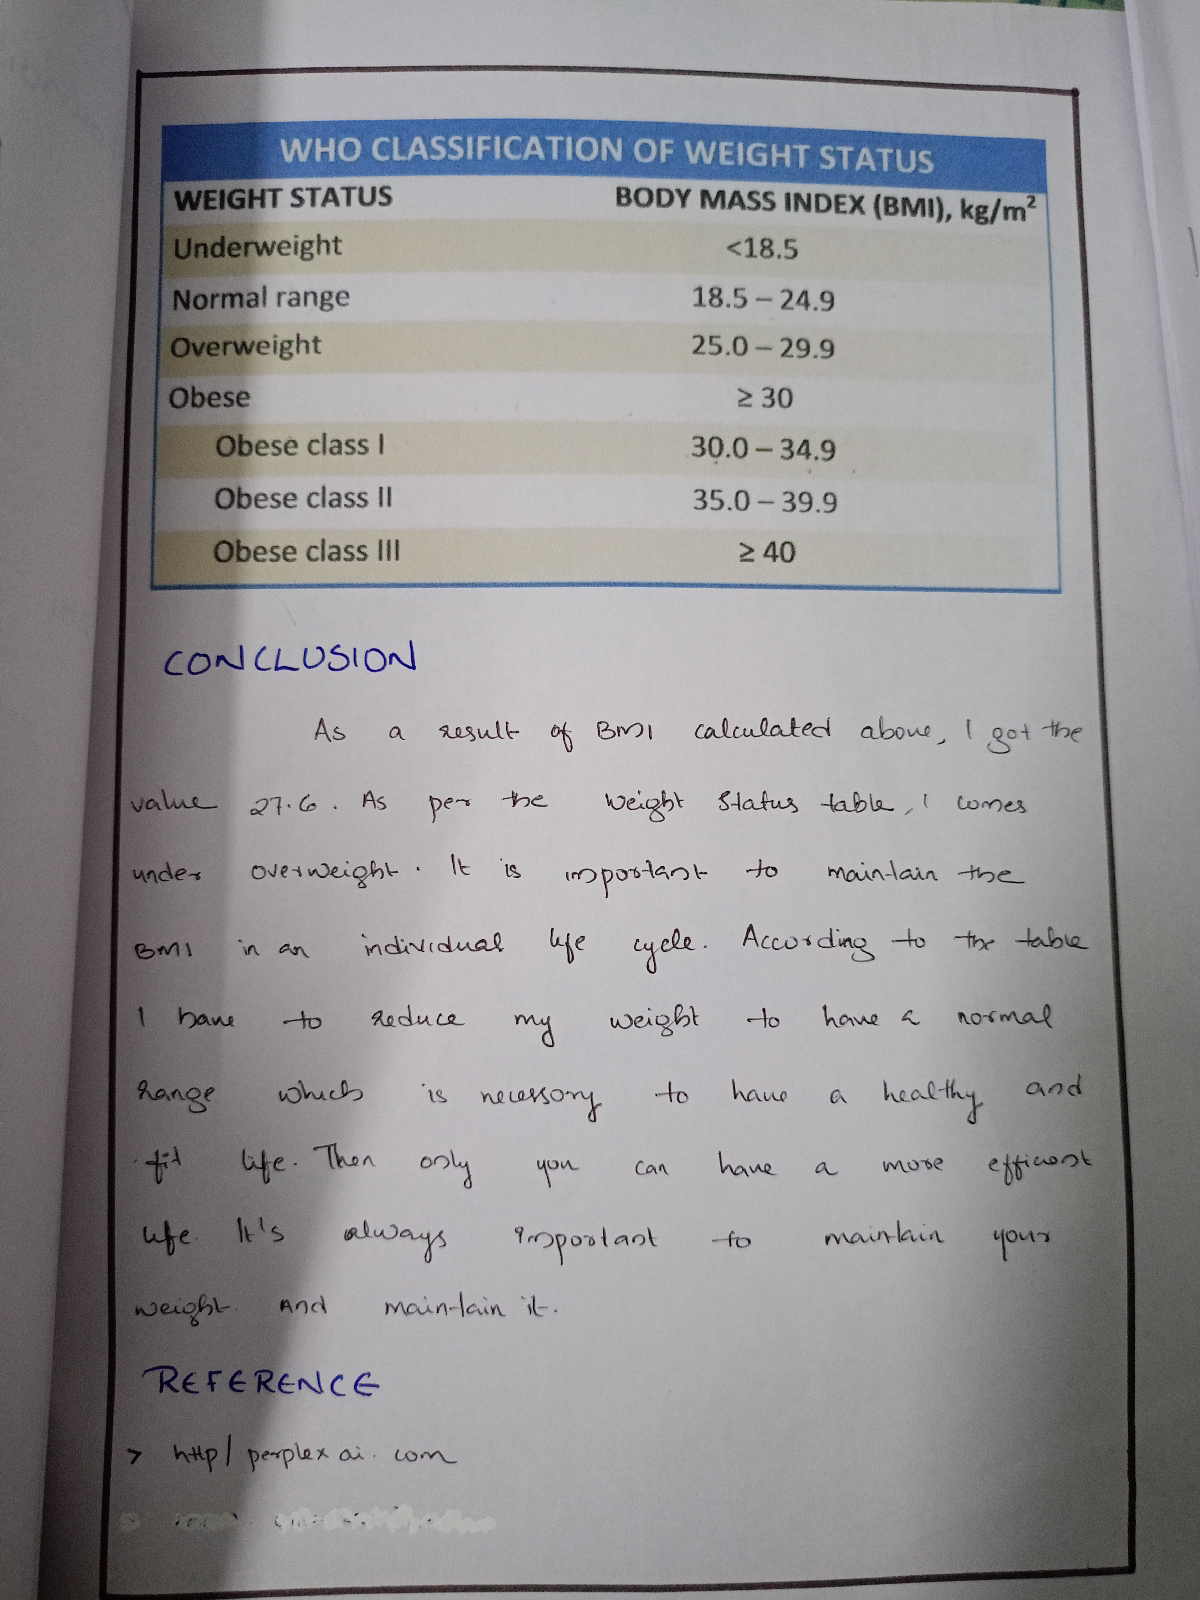 WHO CLASSIFICATION OF WEIGHT STATUS
WEIGHT STATUS BODY MASS INDEX (BMI), kg/m²
Underweight <18.5
Normal range 18.5 – 24.9
Overweight 25.0 – 29.9
Obese ≥ 30
Obese class I 30.0 – 34.9
Obese class II 35.0 – 39.9
Obese class III ≥ 40
CONCLUSION
As a result of BMI calculated above, I got the
value 27.6. As per the weight status table, I comes
under overweight. It is important to maintain the
BMI in an individual life cycle. According to the table
I have to reduce my weight to have a normal
range which is necessory to have a healthy and
fit life. Then only you can have a more efficient
life. It's always important to maintain your
weight. And maintain it.
REFERENCE
> http/ perplex ai. com